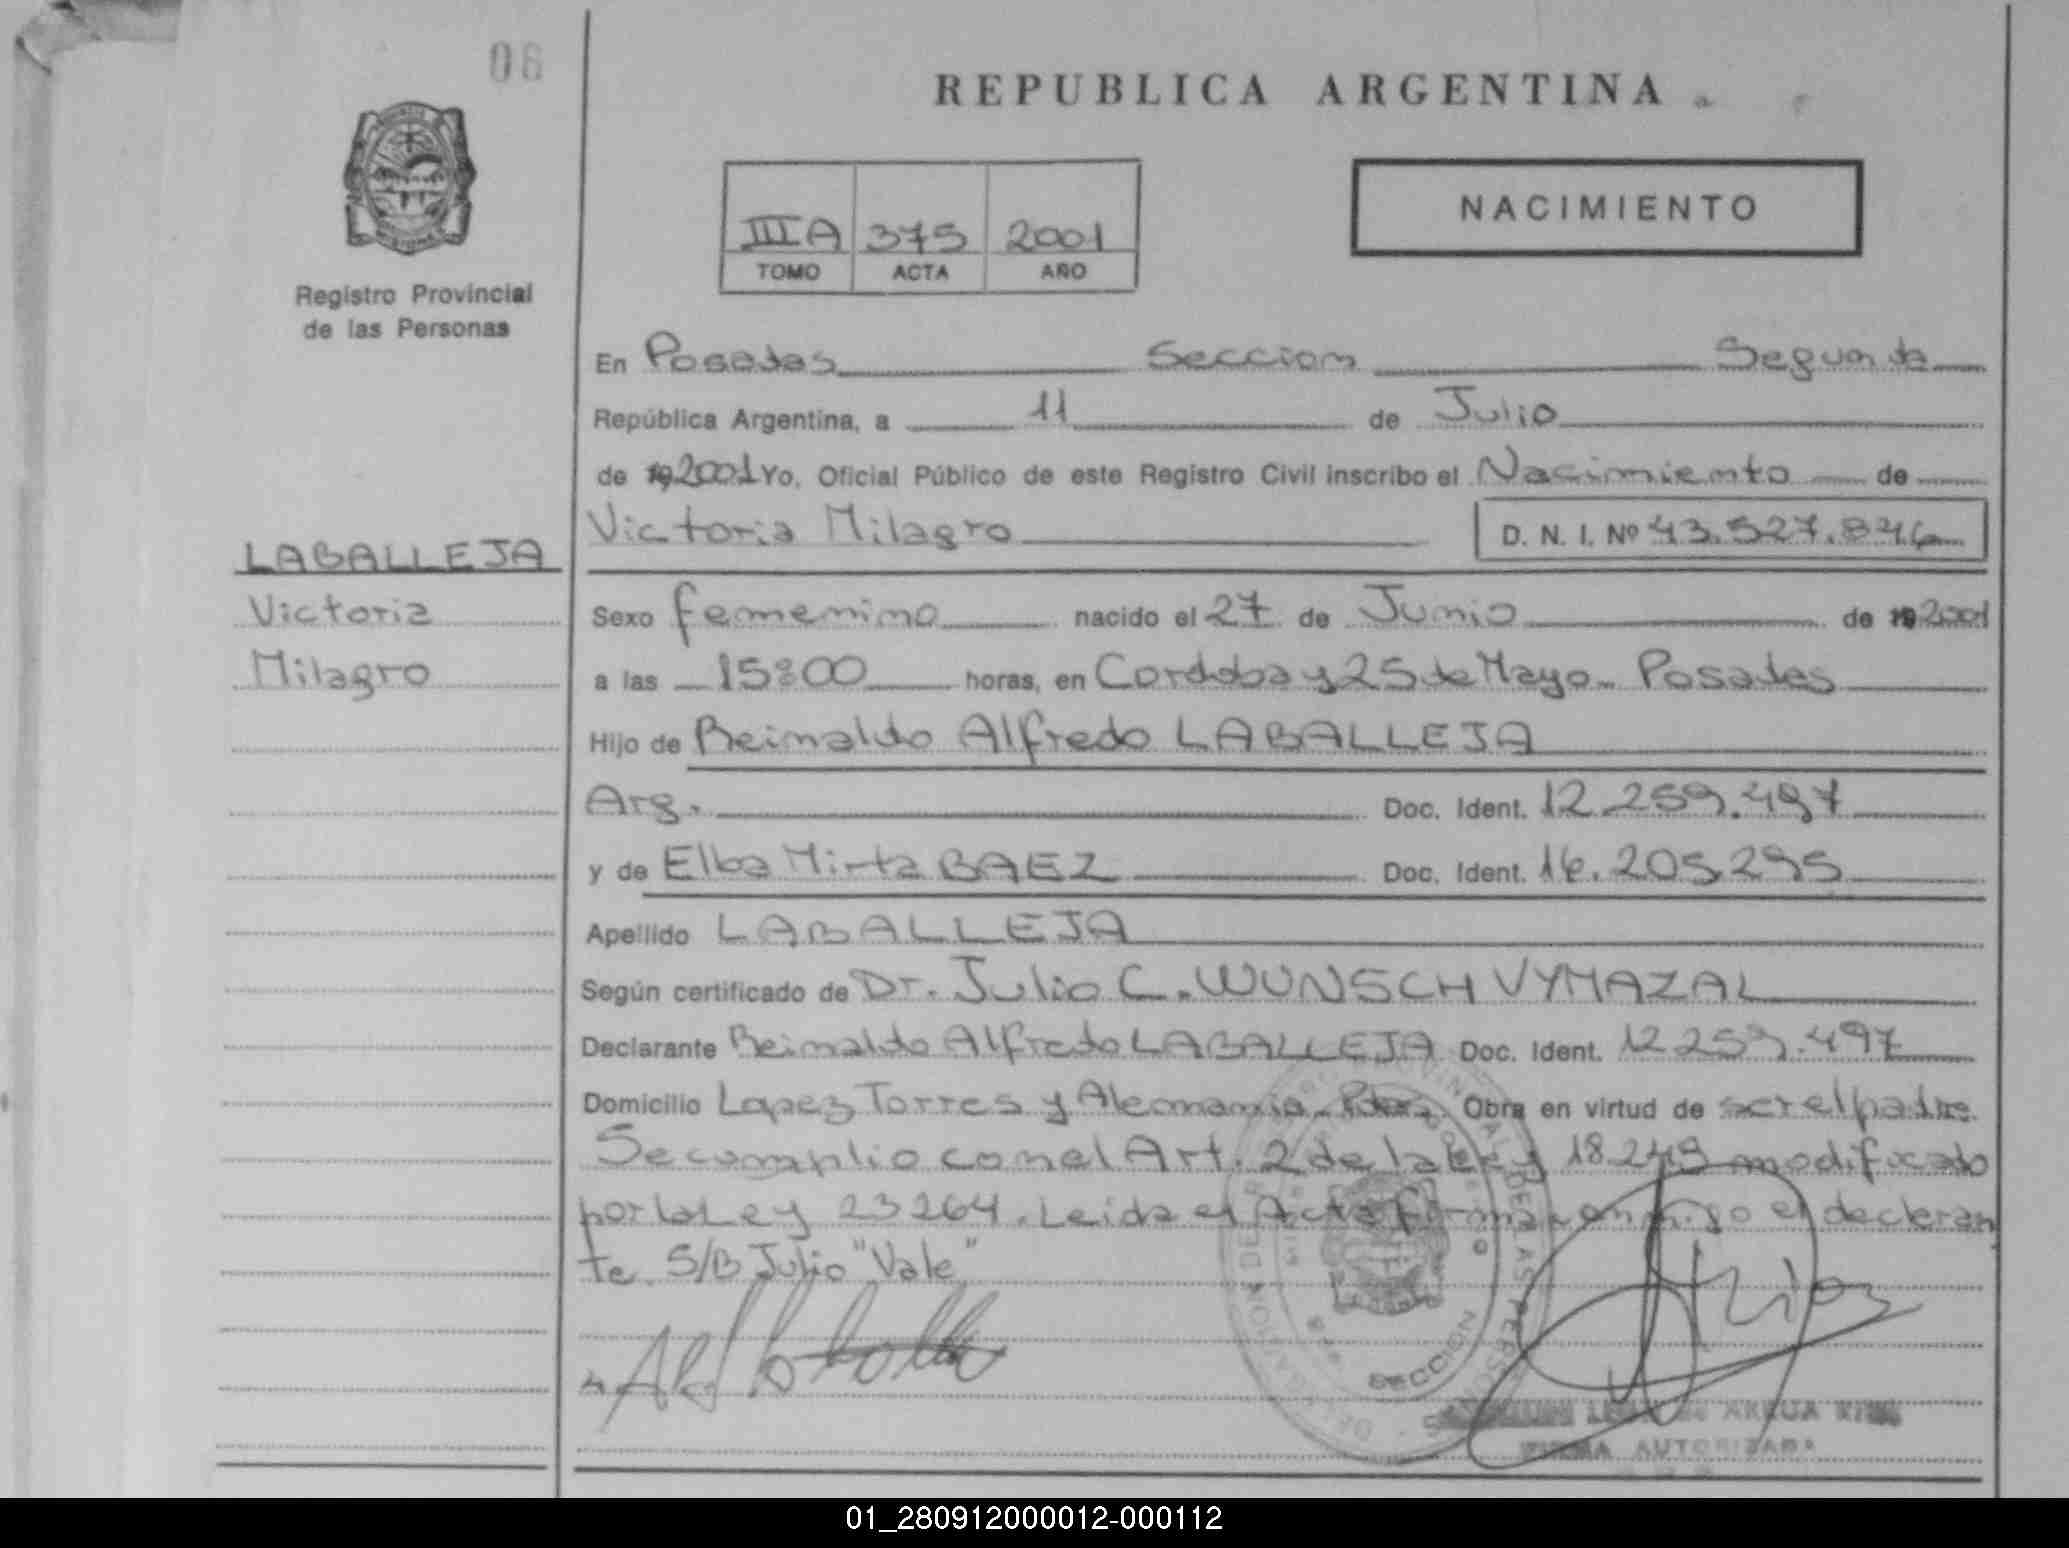 06
REPUBLICA ARGENTINA
NACIMIENTO
IIIA 375 2001
TOMO ACTA AÑO
Registro Provincial
de las Personas
En Posadas Seccion Segunda
República Argentina, a 11 de Julio
de 19 2001 Yo, Oficial Público de este Registro Civil inscribo el Nacimiento de
Victoria Milagro D. N. I. Nº 43.527.846
LABALLEJA
Victoria
Milagro
Sexo femenino nacido el 27 de Junio de 19 2001
a las 15:00 horas, en Cordoba y 25 de Mayo - Posadas
Hijo de Reinaldo Alfredo LABALLEJA
Arg. Doc. Ident. 12.259.497
y de Elba Mirta BAEZ Doc. Ident. 16.205.295
Apellido LABALLEJA
Según certificado de Dr. Julio C. WUNSCH VYMAZAL
Declarante Reinaldo Alfredo LABALLEJA Doc. Ident. 12.259.497
Domicilio Lopez Torres y Alemania - Pdas. Obra en virtud de ser el padre.
Se cumplio con el Art. 2 de la Ley 18.249 modificado
por la Ley 23264. Leida el Acta firma conmigo el declaran
te. S/B Julio "Vale"
SECCION
FIRMA AUTORIZADA
01_280912000012-000112